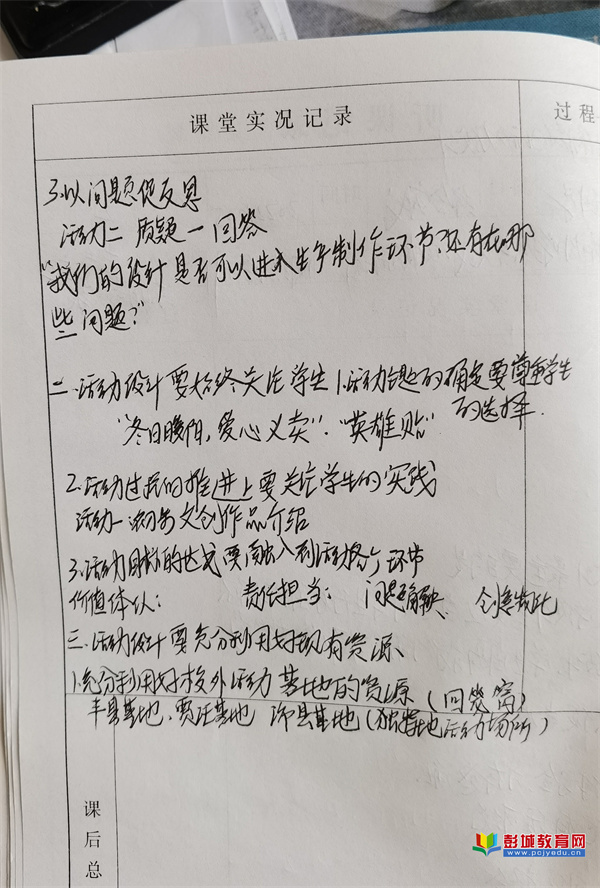 课堂实况记录
过程
3.以问题促反思
活动二 质疑一回答
“我们的设计是否可以进入生产制作环节?还存在哪
些问题?”
二.活动设计要始终关注学生 1.活动主题的确定要尊重学生
的选择.
“冬日暖阳,爱心义卖”.“英雄贴”
2.活动过程的推进上要关注学生的实践
活动一:初步文创作品介绍
3.活动目标的达成要融入到活动各个环节
价值体认: 责任担当: 问题解决、 创意物化
三.活动设计要充分利用好现有资源、
1.充分利用好校外活动基地的资源
丰县基地、贾汪基地 沛县基地(独特地活动场所)
课后总
彭城教育网
www.pcjyedu.cn